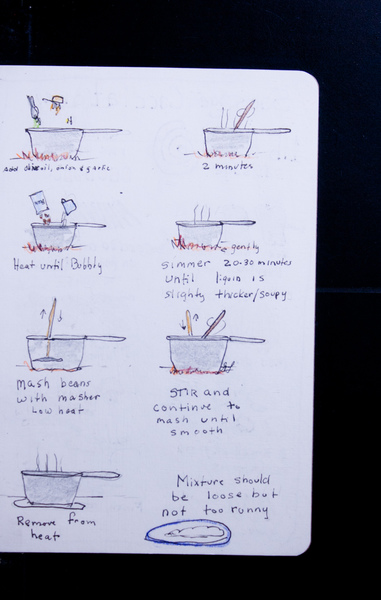 add oil, onion & garlic
2 minutes
Heat until Bubbly
gently
simmer 20-30 minutes
until liquid is
slighty thicker/soupy
Mash beans
with masher
Low heat
STIR and
continue to
mash until
smooth
Remove from
heat
Mixture should
be loose but
not too runny